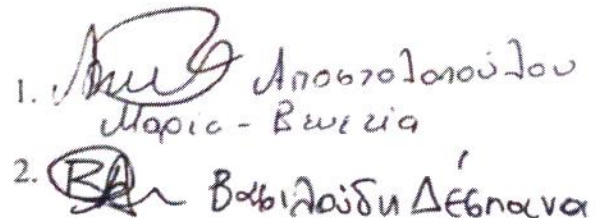 1. Αποστολοπούλου
Μαρία - Βενετία
2. Βασιλούδη Δέσποινα